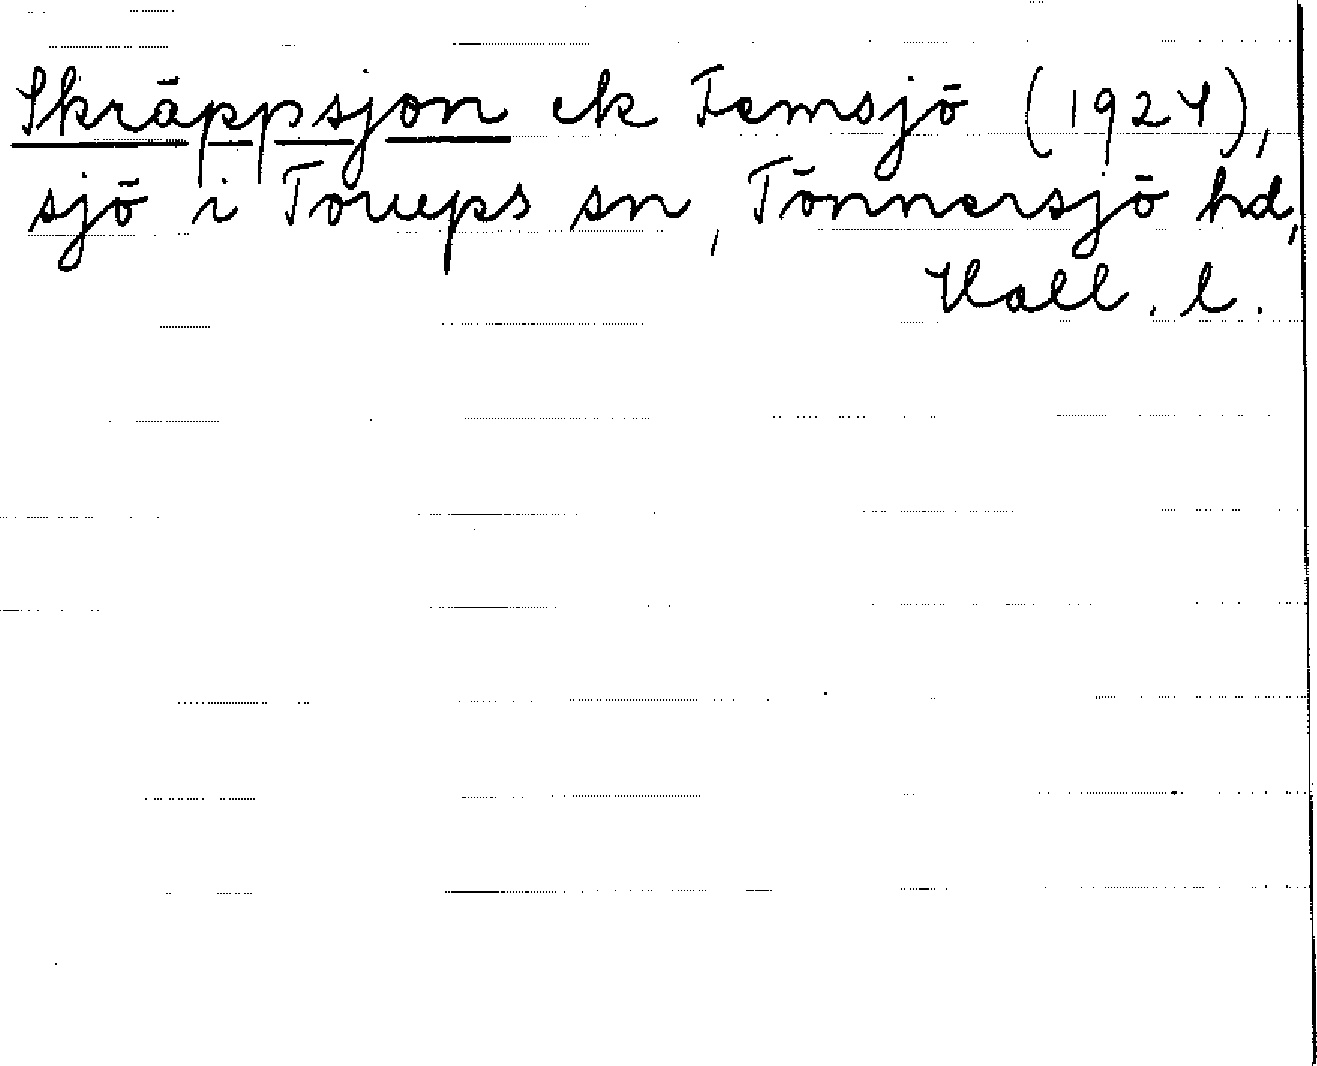 Skräppsjon ek Femsjö (1924),
sjö i Torups sn, Tönnersjö hd,
Hall. l.